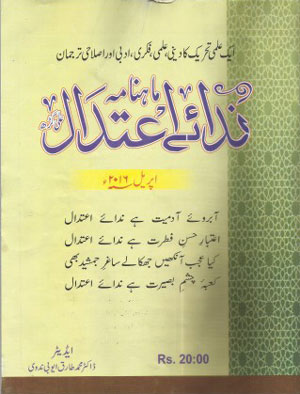 ایک علمی تحریک کا دینی، علمی، فکری، ادبی اور اصلاحی ترجمان
ماہنامہ
ندائے اعتدال
اپریل ۲۰۱۶ء
آبروئے آدمیت ہے ندائے اعتدال
اعتبار حسنِ فطرت ہے ندائے اعتدال
کیا عجب آنکھیں جھکالے ساغرِ جمشید بھی
کعبۂ چشمِ بصیرت ہے ندائے اعتدال
ایڈیٹر
ڈاکٹر محمد طارق ایوبی ندوی
Rs. 20:00